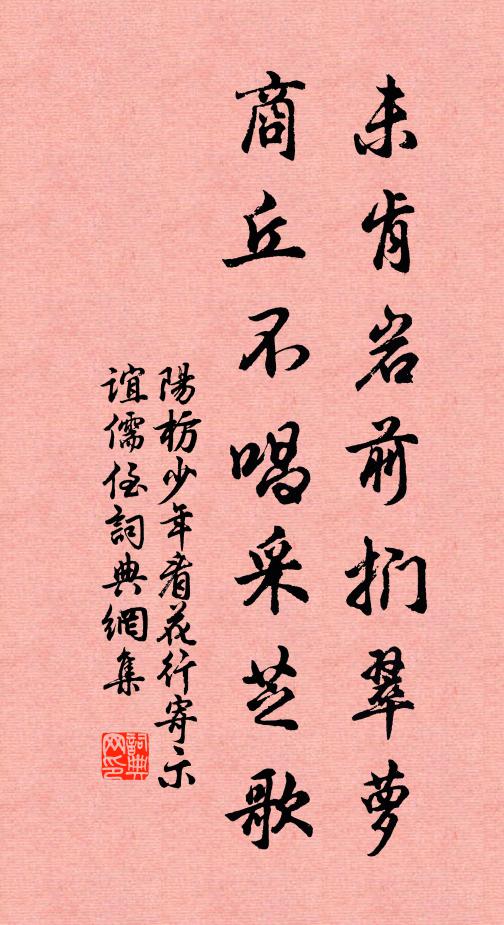 未肯岩前捫翠萝
商丘不唱采芝歌
陽枋少年看花行寄示
誼儒侄詞典網集
詞典网印